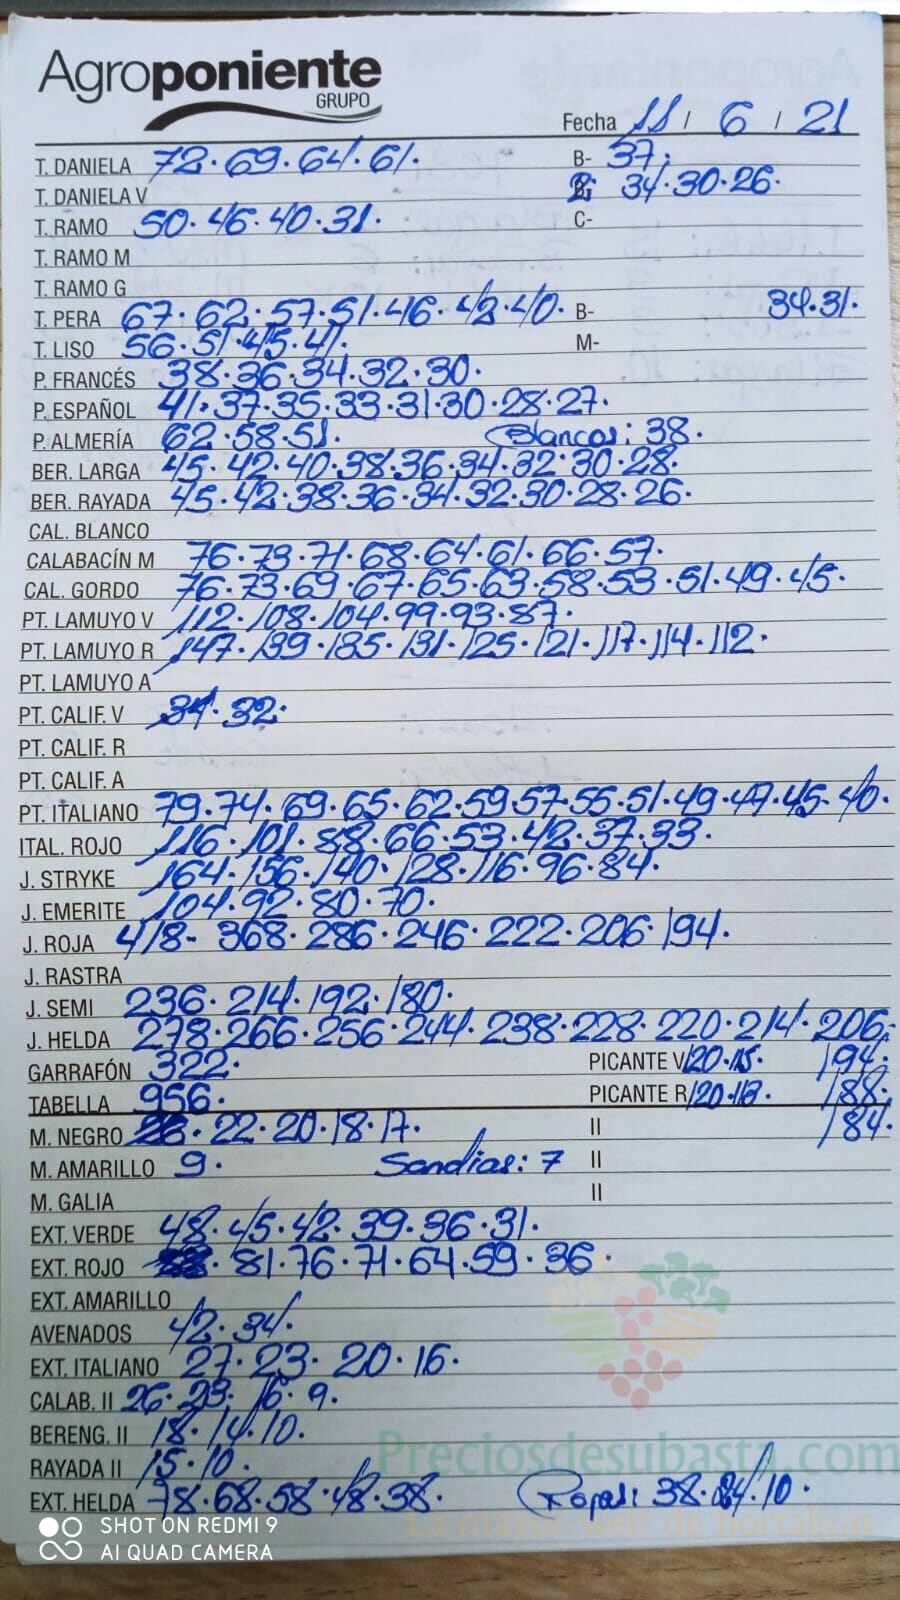 Agroponiente
GRUPO
Fecha 11 / 6 / 21
T. DANIELA 72. 69. 64. 61. B- 37.
T. DANIELA V 34. 30. 26.
T. RAMO 50. 46. 40. 31. C-
T. RAMO M
T. RAMO G
T. PERA 67. 62. 57. 51. 46. 42. 40. B- 34. 31.
T. LISO 56. 51. 45. 41. M-
P. FRANCÉS 38. 36. 34. 32. 30.
P. ESPAÑOL 41. 37. 35. 33. 31. 30. 28. 27.
P. ALMERÍA 62. 58. 51. Blancos: 38.
BER. LARGA 45. 42. 40. 38. 36. 34. 32. 30. 28.
BER. RAYADA 45. 42. 38. 36. 34. 32. 30. 28. 26.
CAL. BLANCO
CALABACÍN M 76. 73. 71. 68. 64. 61. 66. 57.
CAL. GORDO 76. 73. 69. 67. 65. 63. 58. 53. 51. 49. 45.
PT. LAMUYO V 112. 108. 104. 99. 93. 87.
PT. LAMUYO R 147. 139. 135. 131. 125. 121. 117. 114. 112.
PT. LAMUYO A
PT. CALIF. V 34. 32.
PT. CALIF. R
PT. CALIF. A
PT. ITALIANO 79. 74. 69. 65. 62. 59. 57. 55. 51. 49. 47. 45. 40.
ITAL. ROJO 116. 101. 88. 66. 53. 42. 37. 33.
J. STRYKE 164. 156. 140. 128. 116. 96. 84.
J. EMERITE 104. 92. 80. 70.
J. ROJA 418. 368. 286. 246. 222. 206. 194.
J. RASTRA
J. SEMI 236. 214. 192. 180.
J. HELDA 278. 266. 256. 244. 238. 228. 220. 214. 206.
GARRAFÓN 322. PICANTE V 120. 115. 194.
TABELLA 956. PICANTE R 120. 113. 188.
M. NEGRO 22. 20. 18. 17. II 184.
M. AMARILLO 9. Sandias: 7 II
M. GALIA II
EXT. VERDE 48. 45. 42. 39. 36. 31.
EXT. ROJO 81. 76. 71. 64. 59. 36.
EXT. AMARILLO
AVENADOS 42. 34.
EXT. ITALIANO 27. 23. 20. 16.
CALAB. II 26. 23. 16. 9.
BERENG. II 18. 14. 10.
Preciosdesubasta.com
RAYADA II 15. 10.
EXT. HELDA 78. 68. 58. 48. 38. 38. 24. 10.
La mayor web de hortalizas
SHOT ON REDMI 9
AI QUAD CAMERA